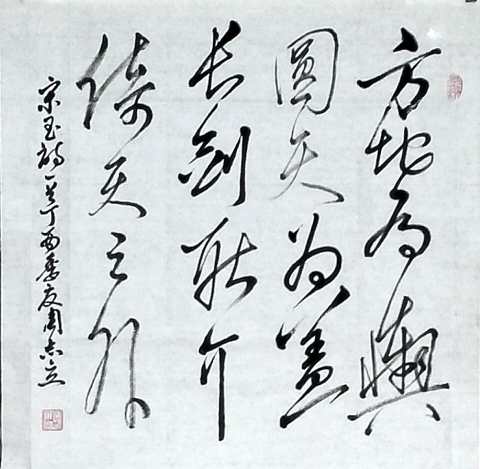 方地为輿
圆天为盖
长剑耿介
倚天之外
宋玉诗 丁酉季夏周志立